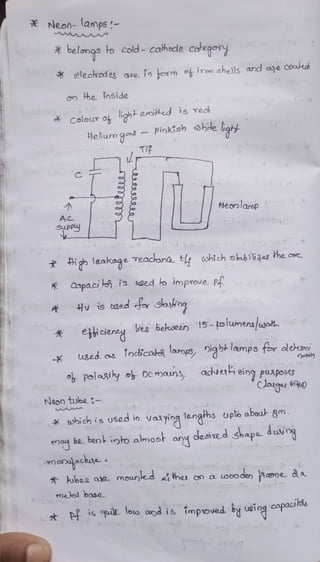 * Neon-lamps :-
* belongs to cold-cathode category
* electrodes are in form of iron shells and are coated
on the inside
* colour of light emitted is red
Helium gas - pinkish white light
T/F
C
Neon lamp
A.C.
supply
* High leakage reactance t/f which stabilizes the arc
* Capacitor is used to improve Pf
* HV is used for starting
* efficiency lies between 15-40 lumens/watt
* used as indicator lamps, night lamps for determi
nation
of polarity of DC mains, advertising purposes
(large signs)
Neon tube :-
* which is used in varying lengths upto about 8m.
may be bent into almost any desired shape during
manufacture.
* tubes are mounted either on a wooden frame or a
metal base
* Pf is quilt low and is improved by using capacitors